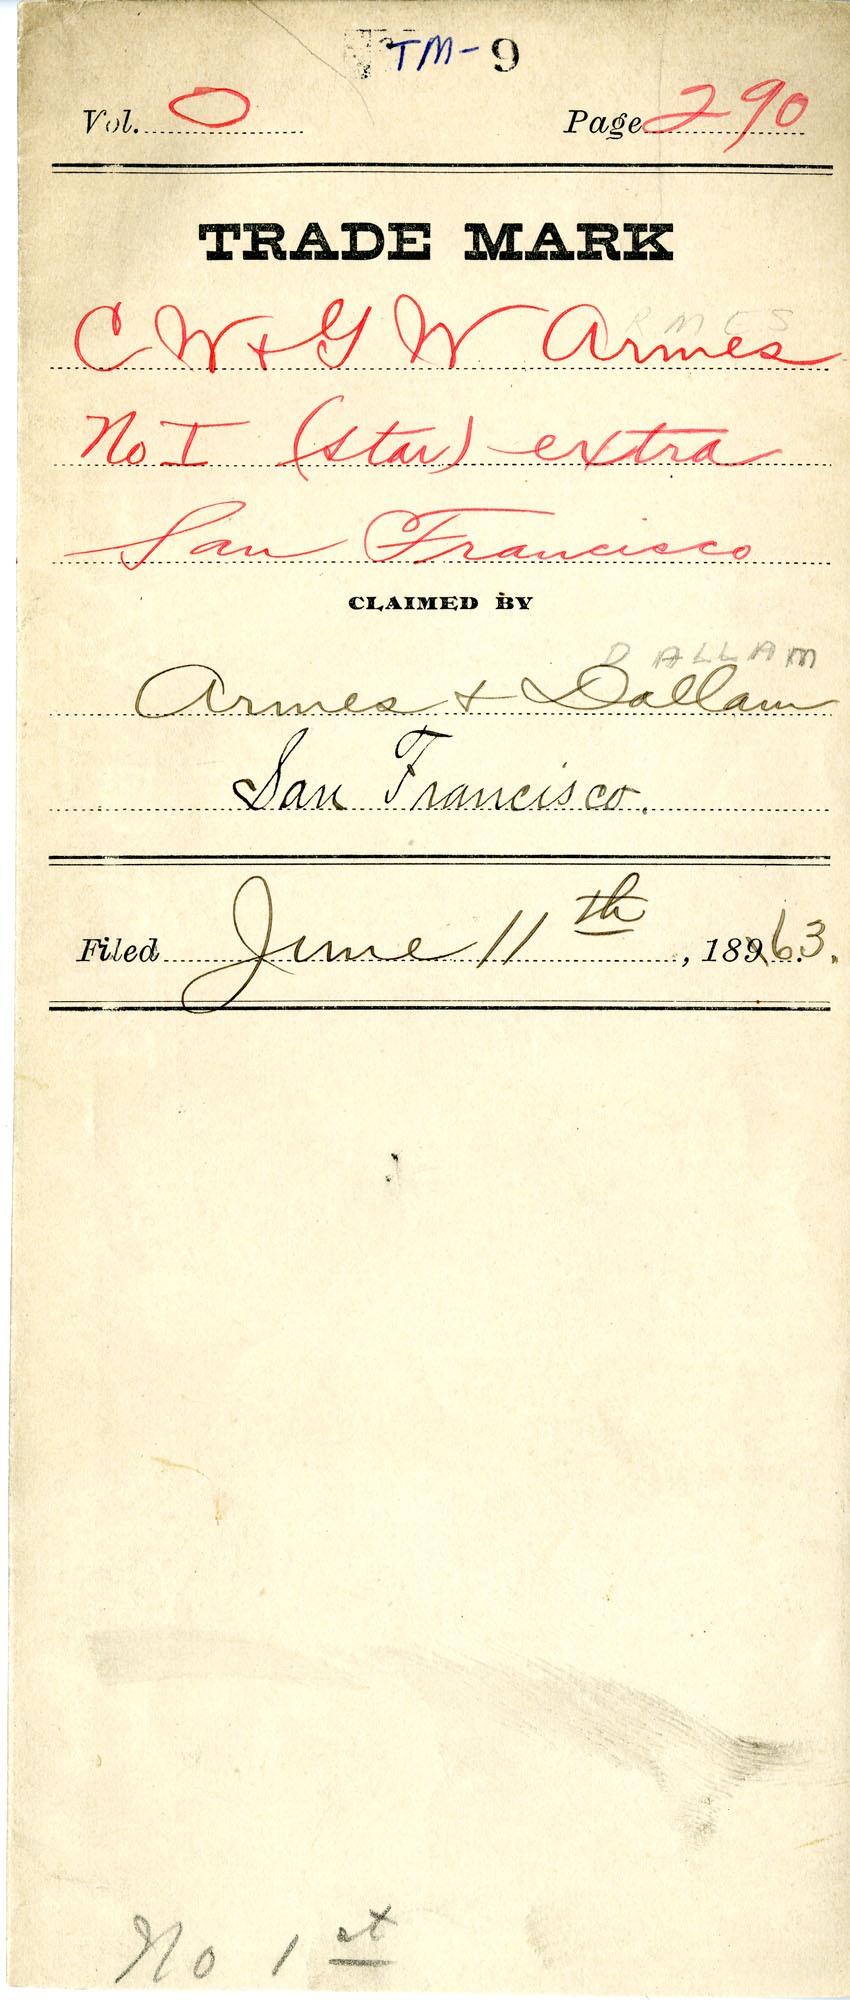 TM- 9
Vol. 0 Page 290
TRADE MARK
RMES
C W + G W Armes
No I (star) extra
San Francisco
CLAIMED BY
DALLAM
Armes + Dallam
San Francisco.
Filed June 11th, 18963.
No 1st